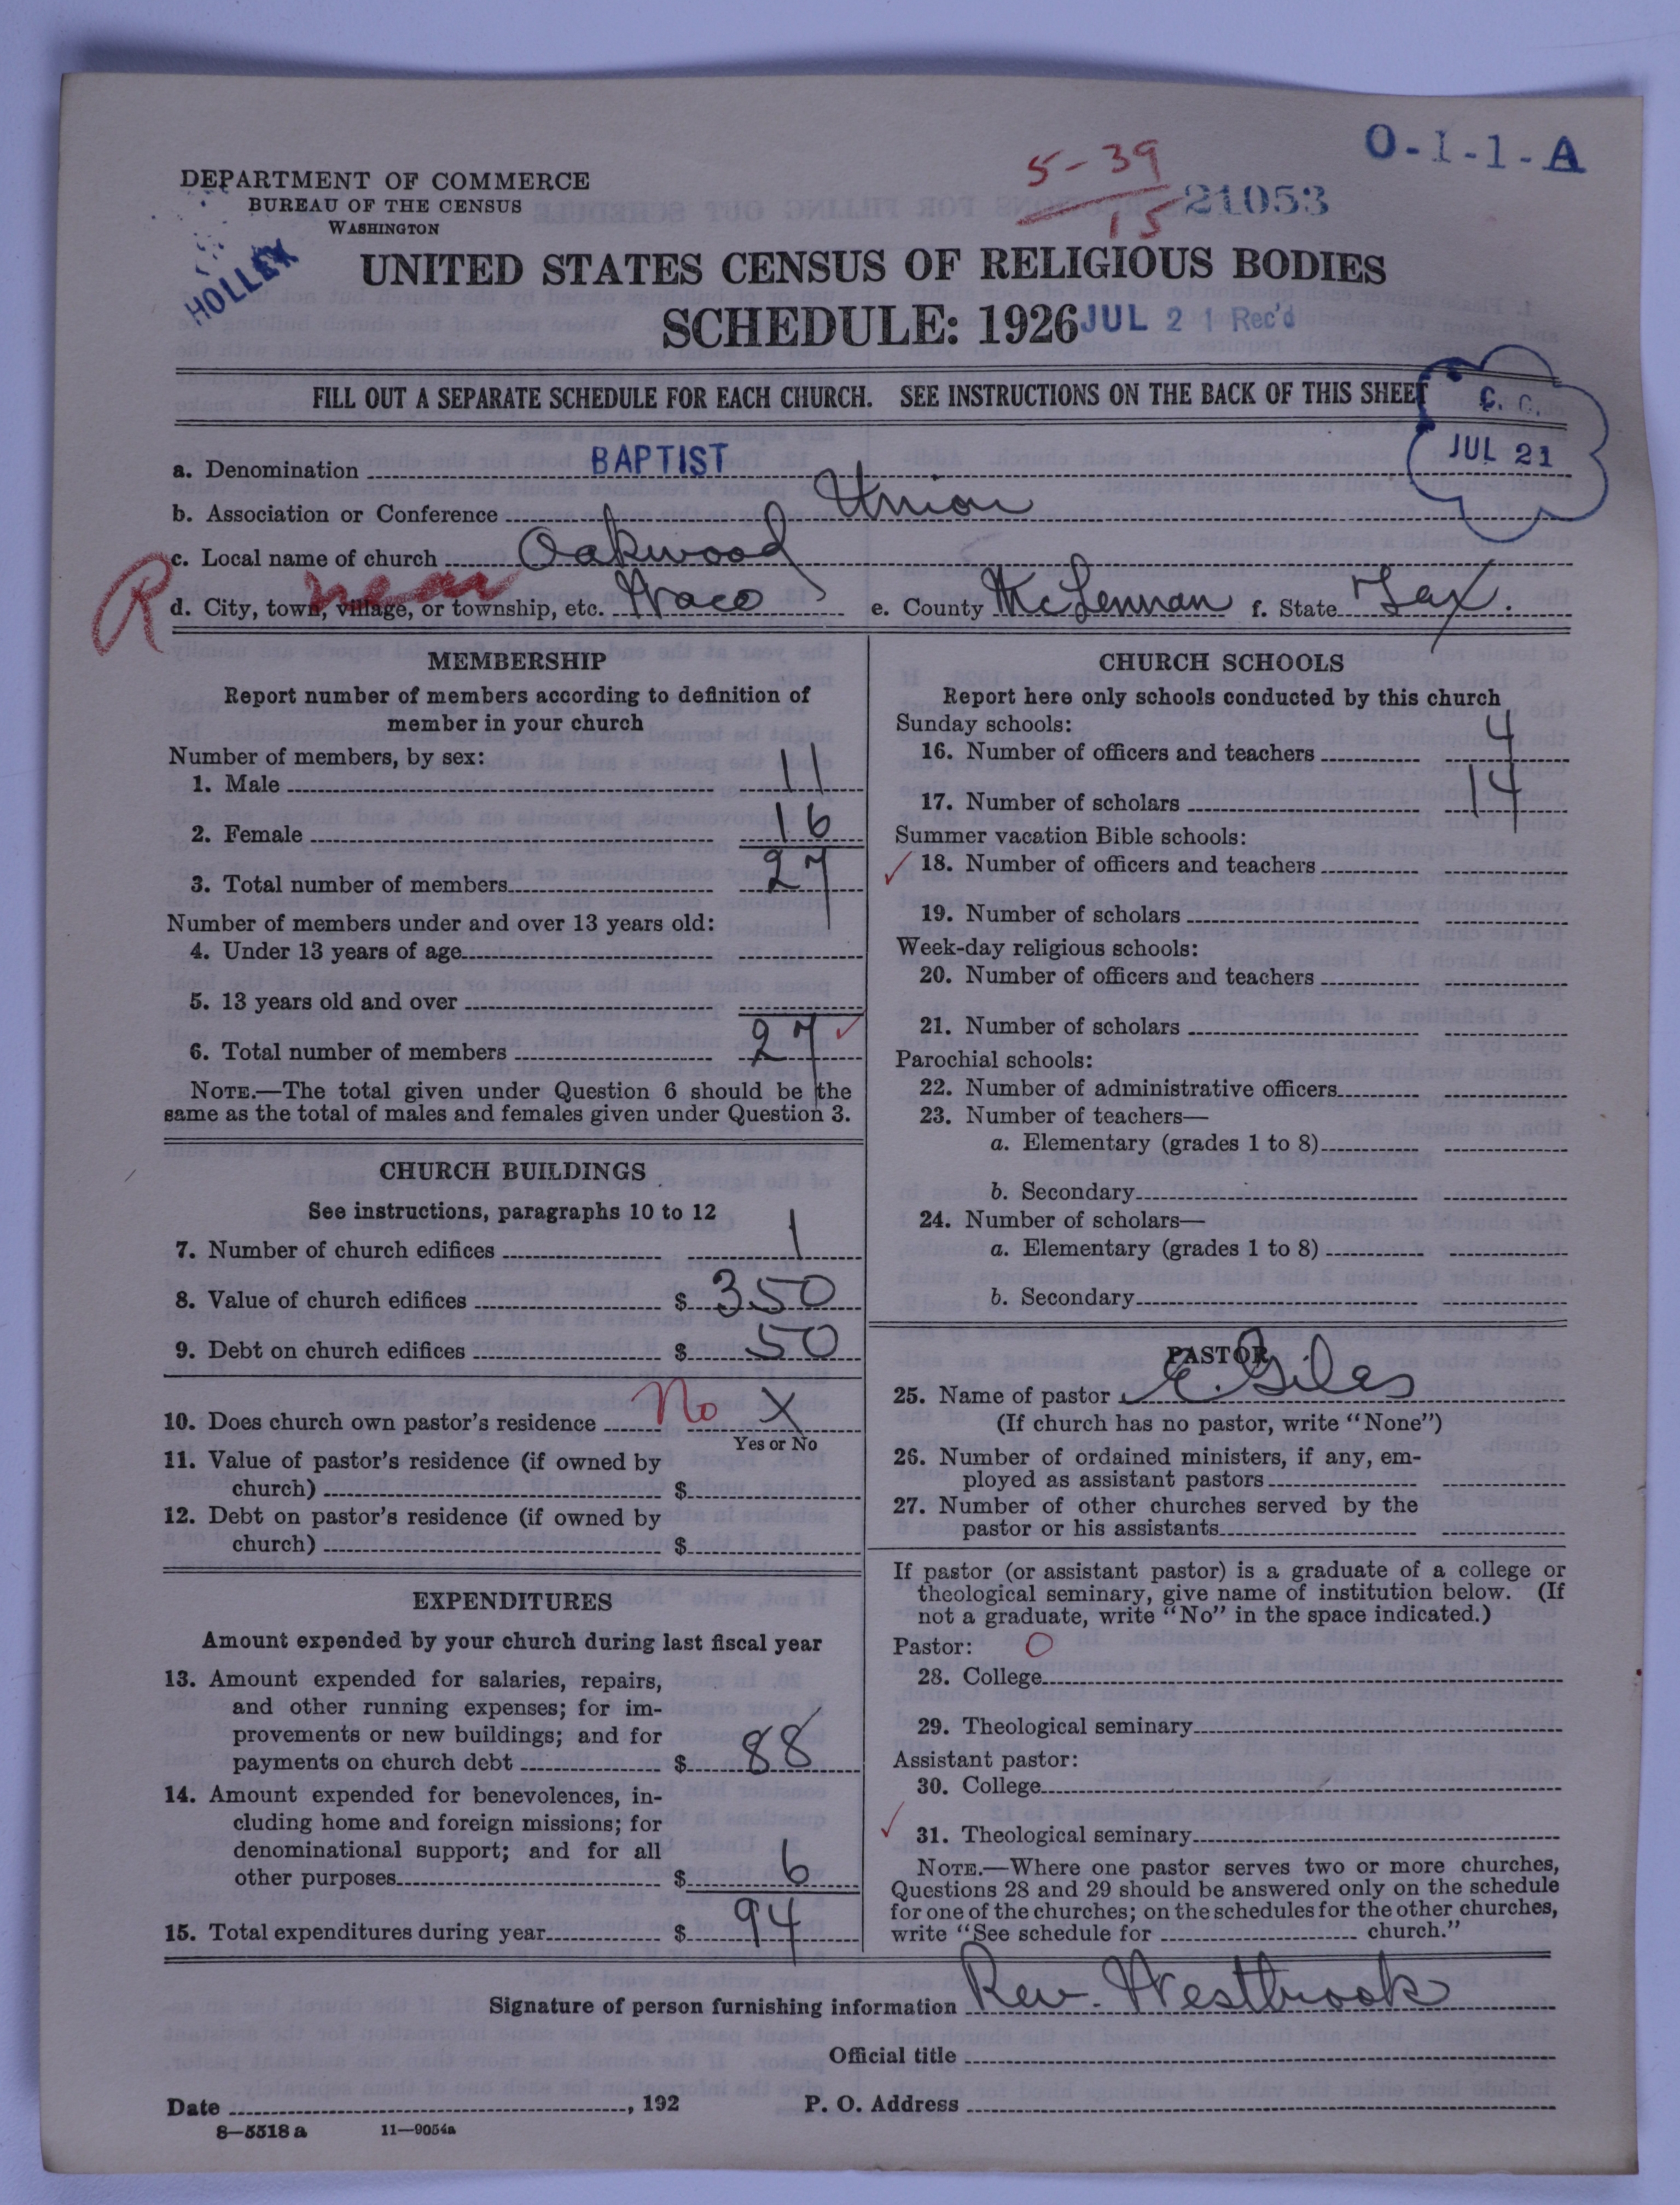 O-1-1-A
5-39
15
21053
DEPARTMENT OF COMMERCE
BUREAU OF THE CENSUS
WASHINGTON
HOLLEK
UNITED STATES CENSUS OF RELIGIOUS BODIES
SCHEDULE: 1926
JUL 21 Rec'd
FILL OUT A SEPARATE SCHEDULE FOR EACH CHURCH. SEE INSTRUCTIONS ON THE BACK OF THIS SHEET
C. C.
JUL 21
a. Denomination BAPTIST
b. Association or Conference Union
c. Local name of church Oakwood
R near
d. City, town, village, or township, etc. Waco e. County McLennan f. State Tex.
MEMBERSHIP
Report number of members according to definition of
member in your church
Number of members, by sex:
1. Male 11
2. Female 16
3. Total number of members 27
Number of members under and over 13 years old:
4. Under 13 years of age
5. 13 years old and over
6. Total number of members 27 ✓
NOTE.—The total given under Question 6 should be the
same as the total of males and females given under Question 3.
CHURCH BUILDINGS
See instructions, paragraphs 10 to 12
7. Number of church edifices 1
8. Value of church edifices $ 350
9. Debt on church edifices $ 50
10. Does church own pastor's residence No X
Yes or No
11. Value of pastor's residence (if owned by
church) $
12. Debt on pastor's residence (if owned by
church) $
EXPENDITURES
Amount expended by your church during last fiscal year
13. Amount expended for salaries, repairs,
and other running expenses; for im-
provements or new buildings; and for
payments on church debt $ 88
14. Amount expended for benevolences, in-
cluding home and foreign missions; for
denominational support; and for all
other purposes $ 6
15. Total expenditures during year $ 94
CHURCH SCHOOLS
Report here only schools conducted by this church
Sunday schools:
16. Number of officers and teachers 4
17. Number of scholars 14
Summer vacation Bible schools:
✓ 18. Number of officers and teachers
19. Number of scholars
Week-day religious schools:
20. Number of officers and teachers
21. Number of scholars
Parochial schools:
22. Number of administrative officers
23. Number of teachers—
a. Elementary (grades 1 to 8)
b. Secondary
24. Number of scholars—
a. Elementary (grades 1 to 8)
b. Secondary
PASTOR
25. Name of pastor E. Giles
(If church has no pastor, write "None")
26. Number of ordained ministers, if any, em-
ployed as assistant pastors
27. Number of other churches served by the
pastor or his assistants
If pastor (or assistant pastor) is a graduate of a college or
theological seminary, give name of institution below. (If
not a graduate, write "No" in the space indicated.)
Pastor: O
28. College
29. Theological seminary
Assistant pastor:
30. College
✓ 31. Theological seminary
NOTE.—Where one pastor serves two or more churches,
Questions 28 and 29 should be answered only on the schedule
for one of the churches; on the schedules for the other churches,
write "See schedule for church."
Signature of person furnishing information Rev. Westbrook
Official title
Date , 192 P. O. Address
8—5518 a 11—9054a